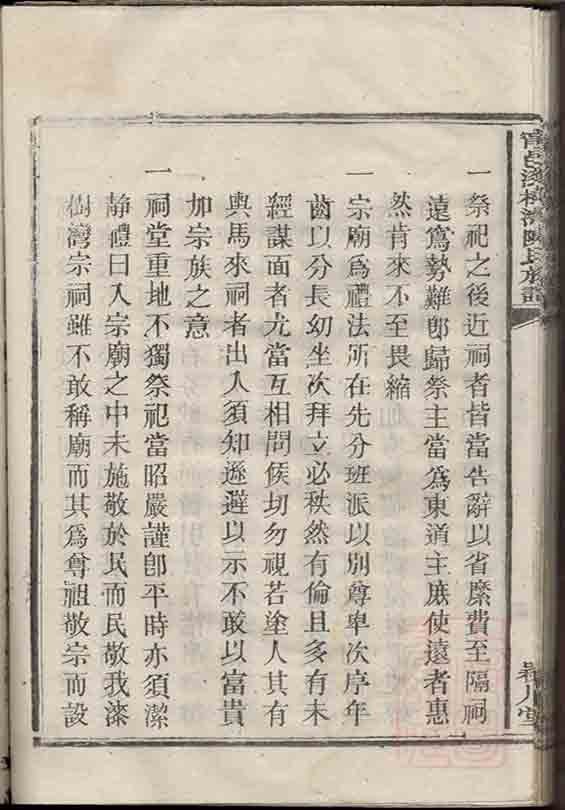 一祭祀之後近祠者皆當告辭以省縻費至隔祠
遠窵勢難卽歸祭主當爲東道主庶使遠者惠
然肯來不至畏縮
一宗廟爲禮法所在先分班派以別尊卑次序年
齒以分長幼坐次拜立必秩然有倫且多有未
經謀面者尤當互相問候切勿視若塗人其有
輿馬來祠者出入須知遜避以示不敢以富貴
加宗族之意
一祠堂重地不獨祭祀當昭嚴謹卽平時亦須潔
静禮曰入宗廟之中未施敬於民而民敬我漆
樹灣宗祠雖不敢稱廟而其爲尊祖敬宗而設